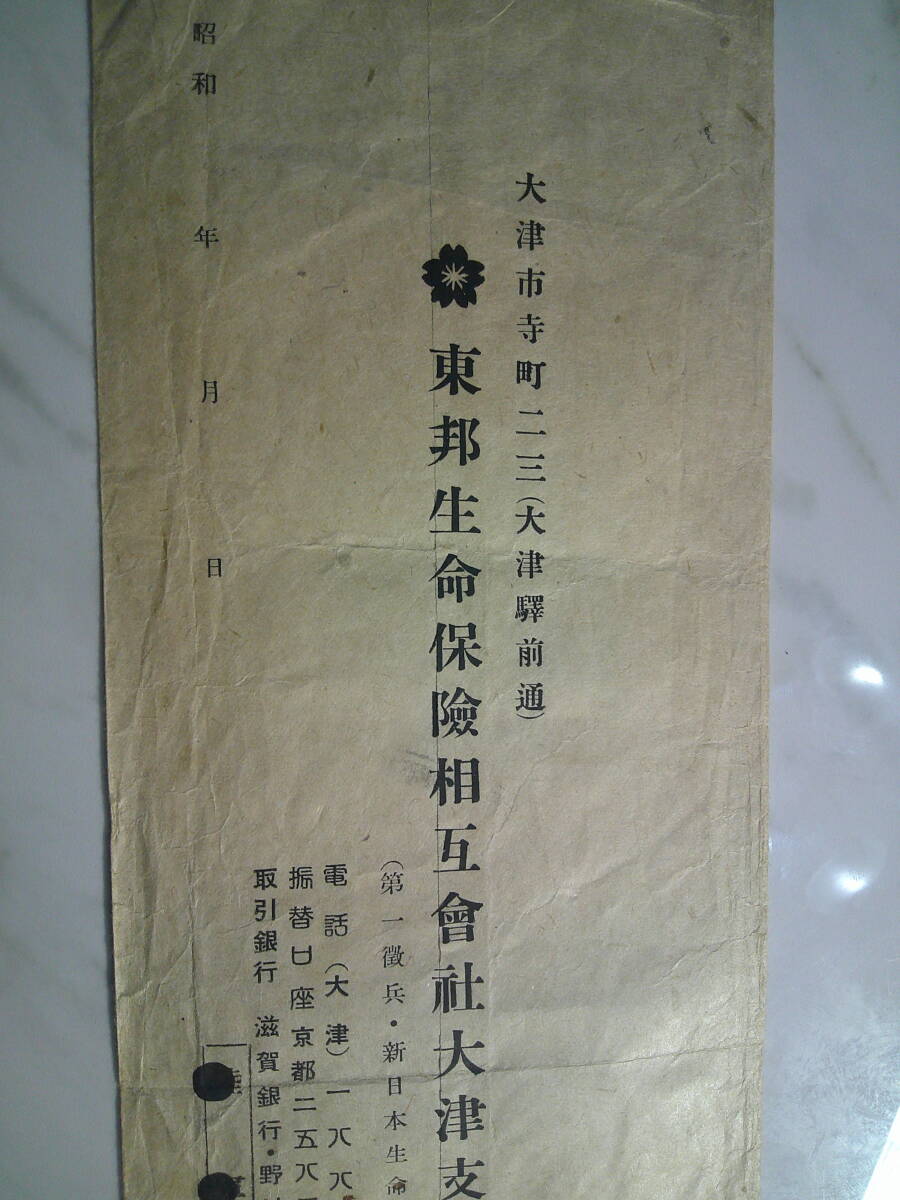 大津市寺町二三(大津驛前通)
東邦生命保險相互會社大津支
(第一徵兵・新日本生命
電話(大津)一八八
振替口座京都二五八
取引銀行 滋賀銀行・野
昭和 年 月 日